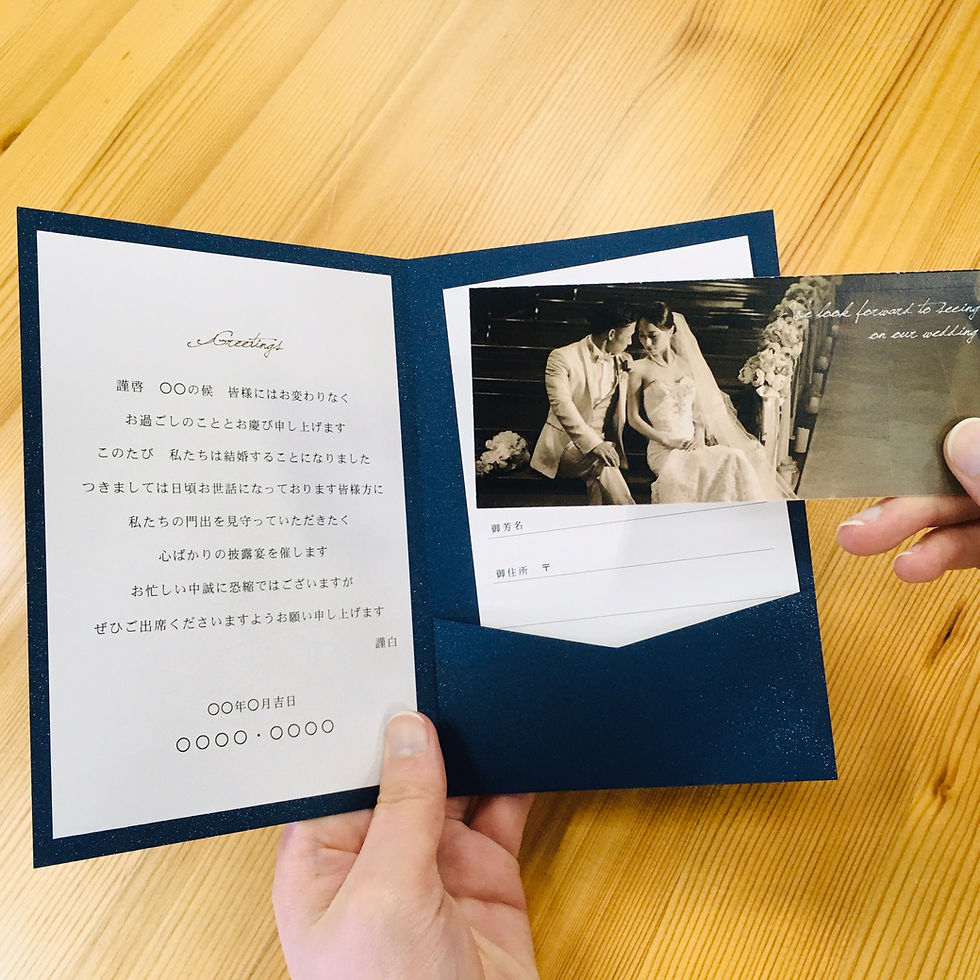 Greetings
謹啓　〇〇の候　皆様にはお変わりなく
お過ごしのこととお慶び申し上げます
このたび　私たちは結婚することになりました
つきましては日頃お世話になっております皆様方に
私たちの門出を見守っていただきたく
心ばかりの披露宴を催します
お忙しい中誠に恐縮ではございますが
ぜひご出席くださいますようお願い申し上げます
謹白
〇〇年〇月吉日
〇〇〇〇・〇〇〇〇
We look forward to seeing
on our wedding
御芳名
御住所　〒